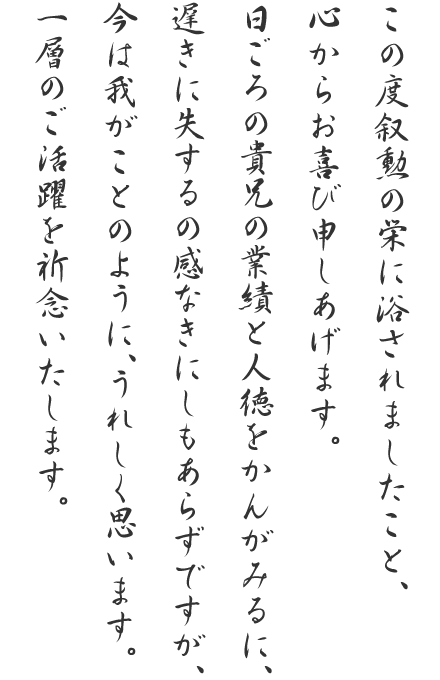 この度叙勲の栄に浴されましたこと、
心からお喜び申しあげます。
日ごろの貴兄の業績と人徳をかんがみるに、
遅きに失するの感なきにしもあらずですが、
今は我がことのように、うれしく思います。
一層のご活躍を祈念いたします。